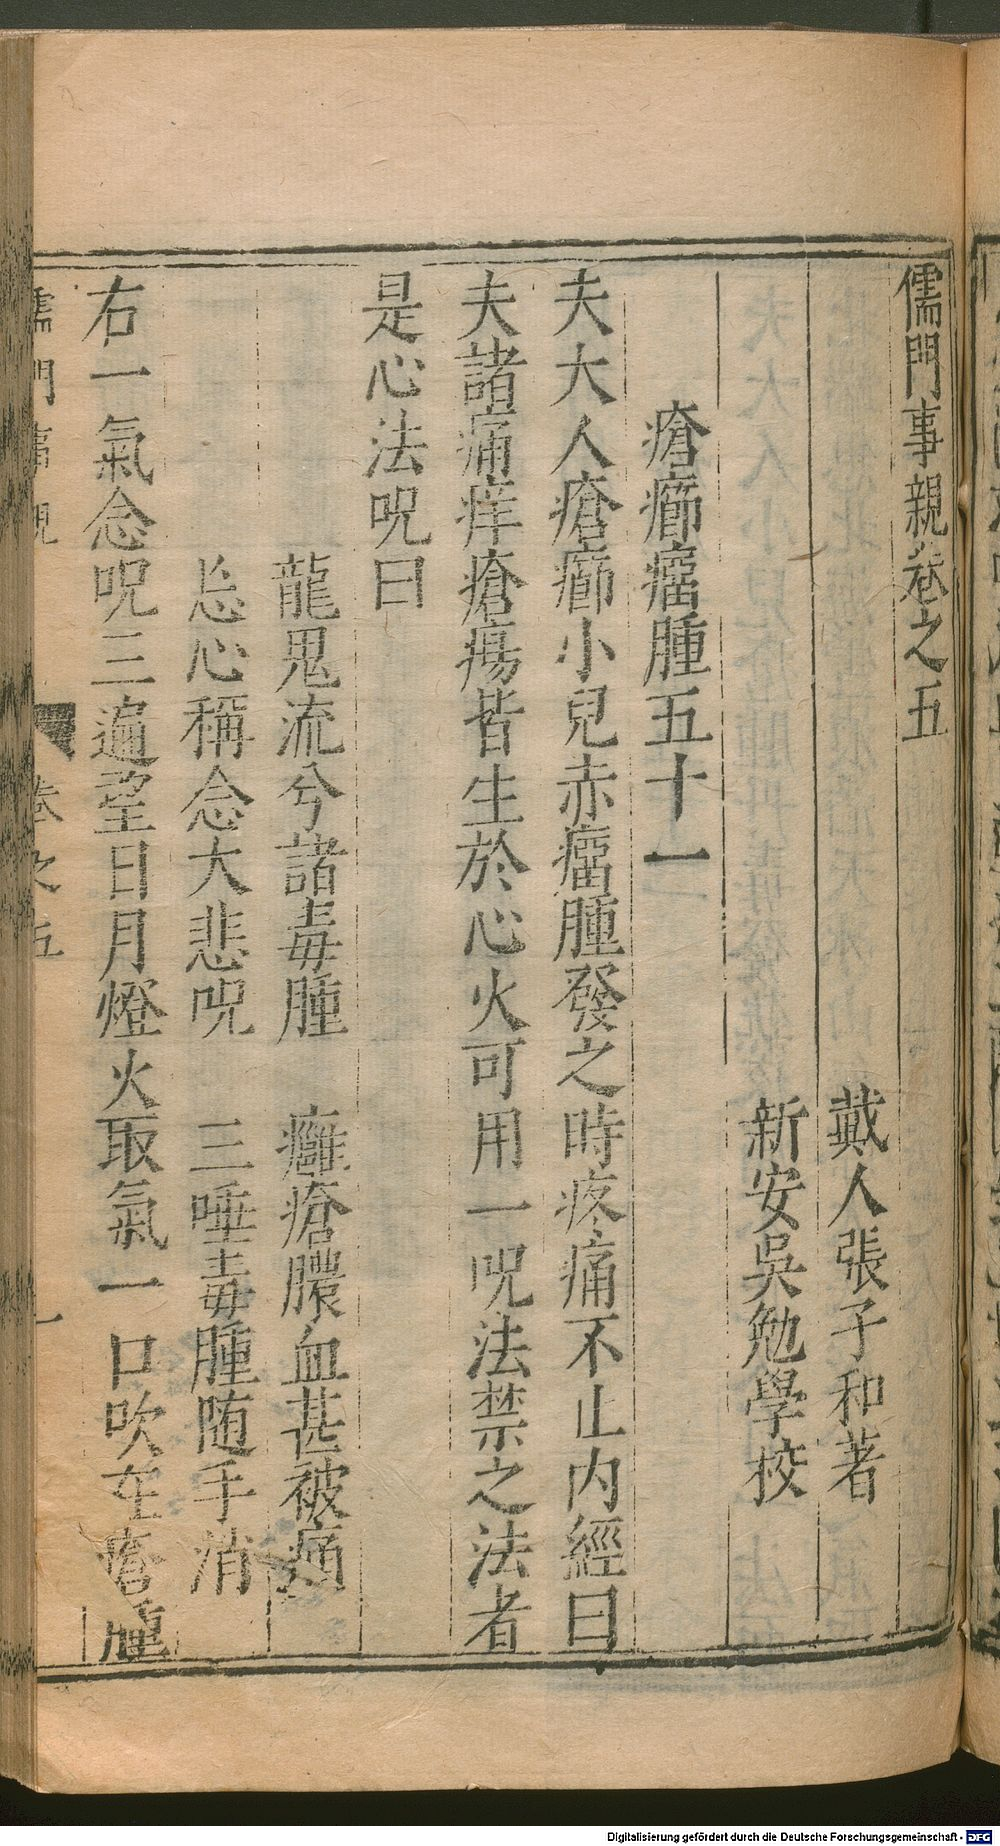 儒門事親卷之五
戴人張子和著
新安吳勉學校
瘡癤瘤腫五十一
夫大人瘡癤小兒赤瘤腫發之時疼痛不止内經曰
夫諸痛痒瘡瘍皆生於心火可用一呪法禁之法者
是心法呪曰
龍鬼流兮諸毒腫　癰瘡膿血甚被痛
忘心稱念大悲呪　三唾毒腫随手消
右一氣念呪三遍望日月燈火取氣一口吹在瘡腫
儒門事親　卷之五　一
Digitalisierung gefördert durch die Deutsche Forschungsgemeinschaft - DFG